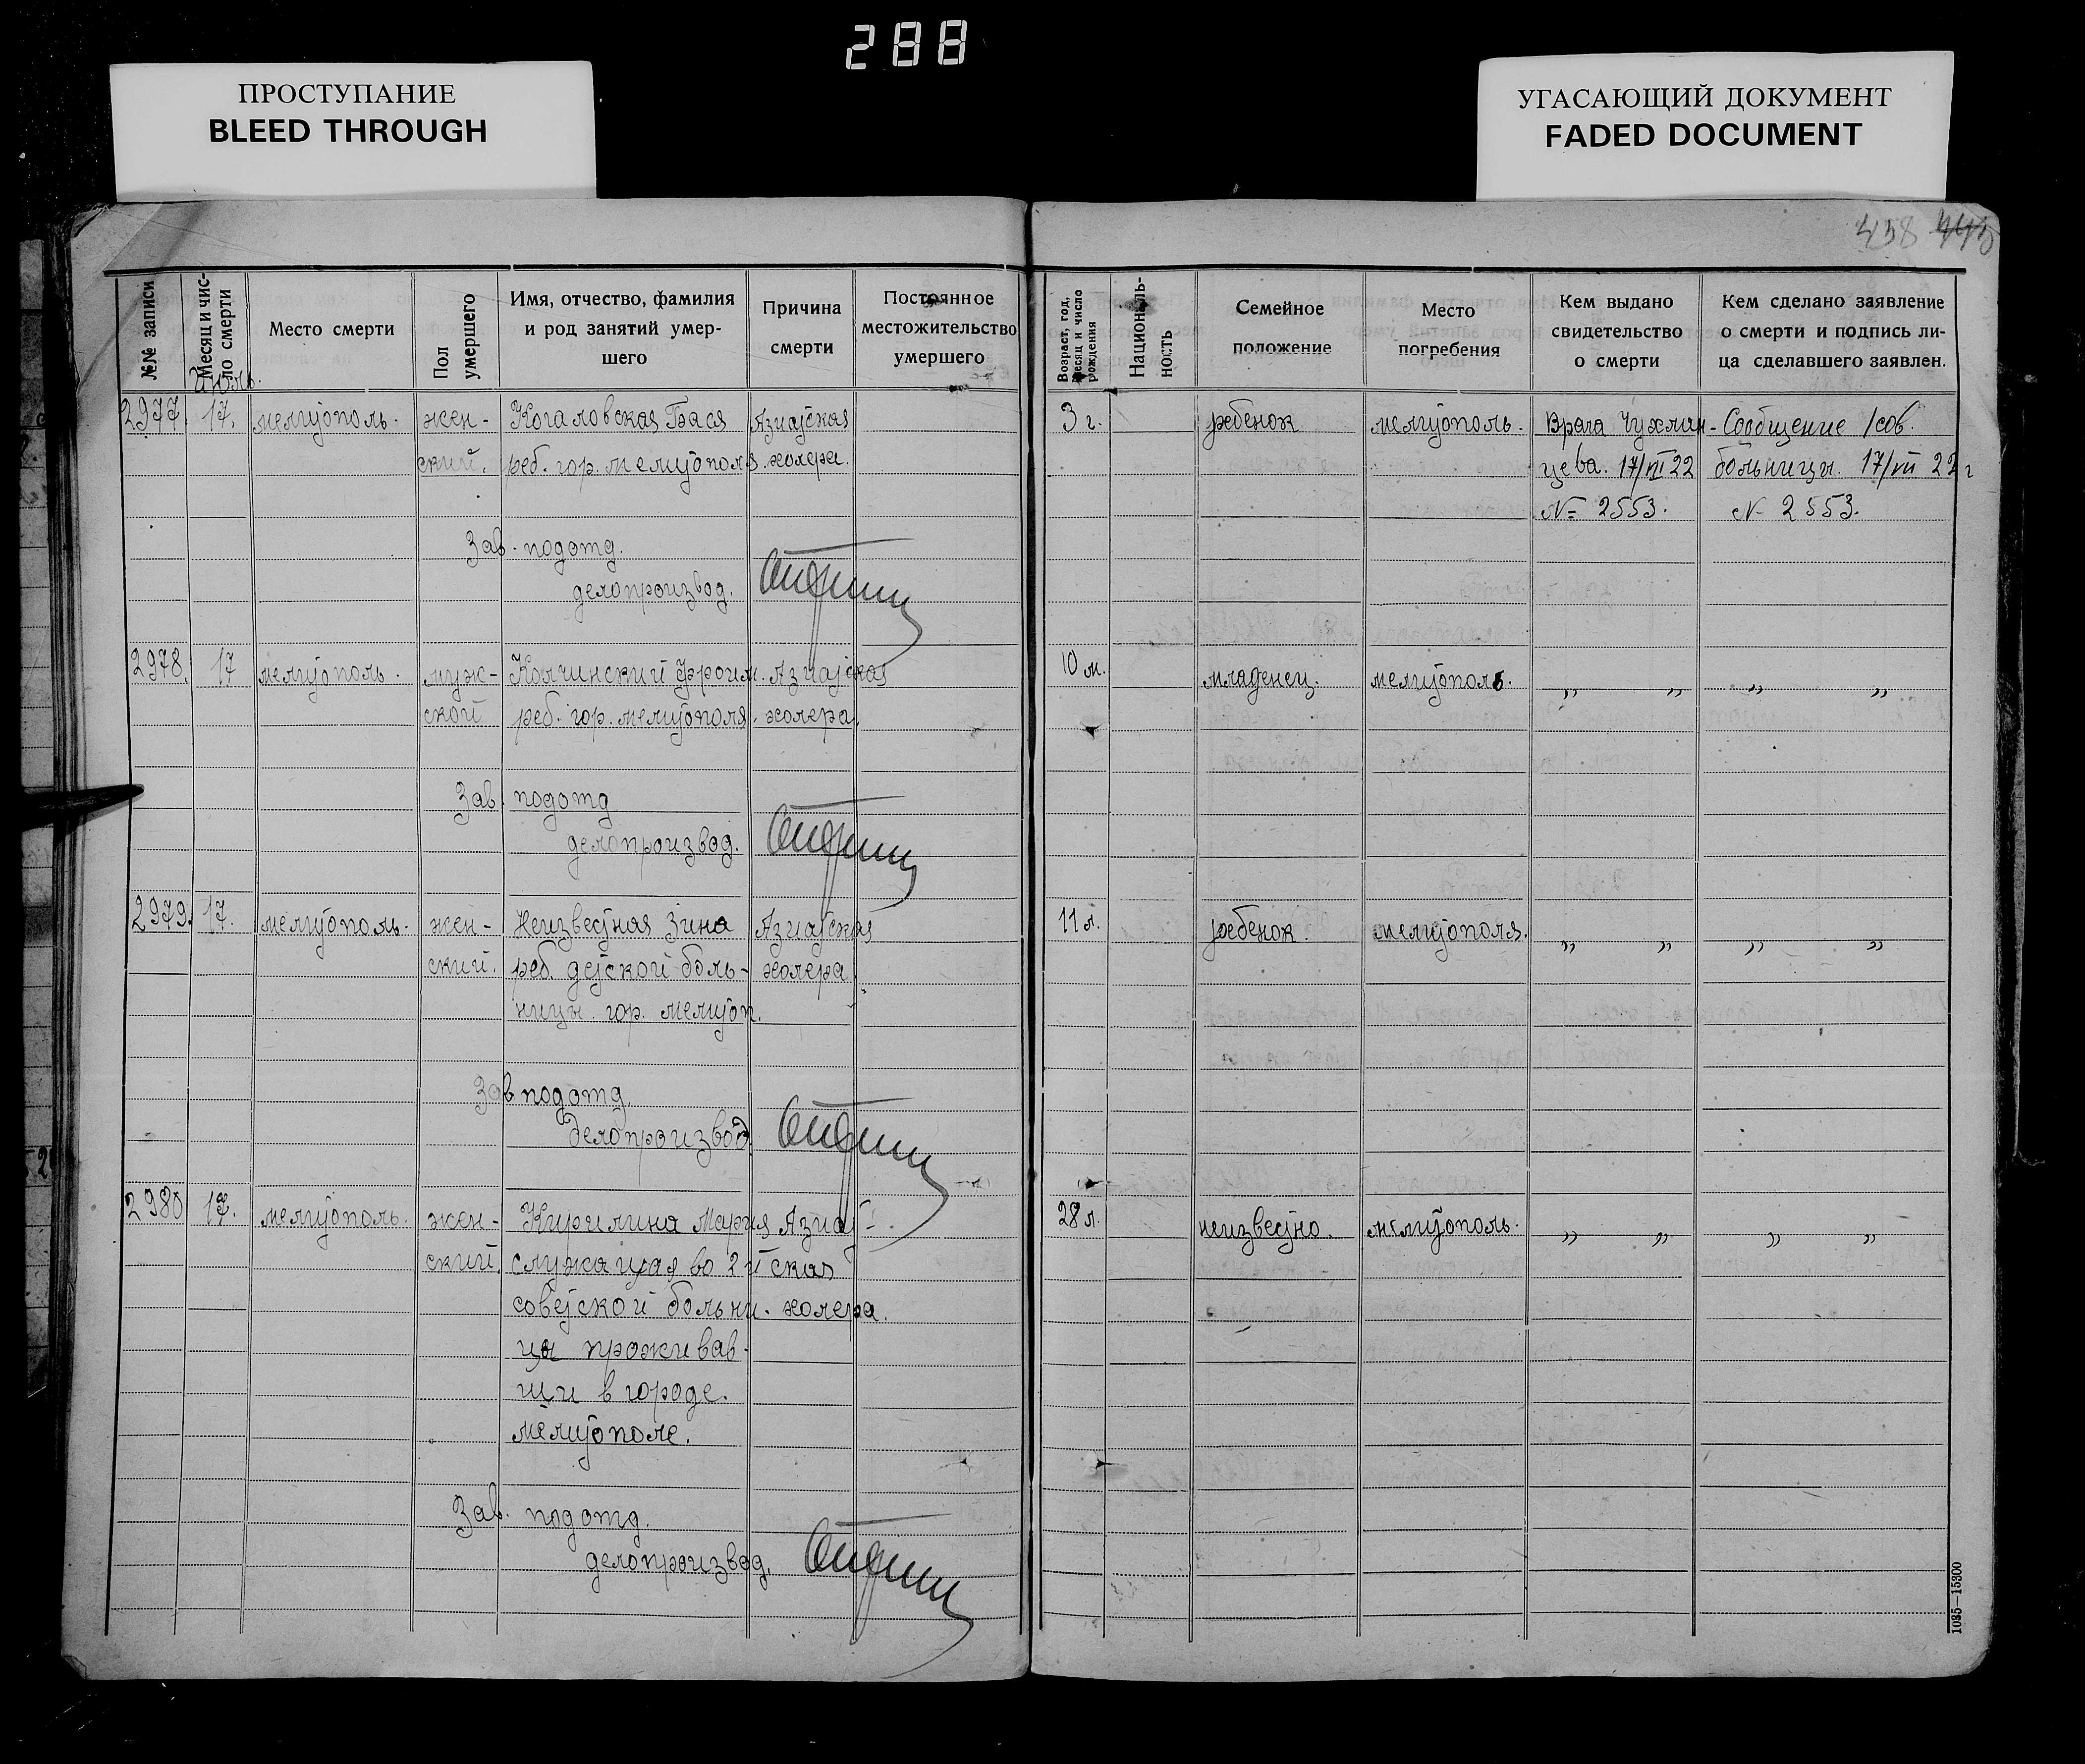 288
ПРОСТУПАНИЕ
BLEED THROUGH
УГАСАЮЩИЙ ДОКУМЕНТ
FADED DOCUMENT
458
№№ записи
Месяц и чис-
ло смерти
Место смерти
Пол
умершего
Имя, отчество, фамилия
и род занятий умер-
шего
Причина
смерти
Постоянное
местожительство
умершего
Возраст, год,
месяц и число
рождения
Националь-
ность
Семейное
положение
Место
погребения
Кем выдано
свидетельство
о смерти
Кем сделано заявление
о смерти и подпись ли-
ца сделавшего заявлен.
Июль.
2977 17. мелитополь. жен- Когаловская Бася Азиатская 3 г. ребенок мелитополь. Врача Чухман- Сообщение 1 сов.
ский. реб. гор. мелитополя. холера. цева. 17/VII 22 больницы. 17/VII 22 г
№ 2553. № 2553.
Зав. подотд.
делопроизвод.
2978. 17 мелитополь. муж- Колчинский Фроим. Азиатская 10 м. младенец. мелитополь. „ „ „ „
ской реб. гор. мелитополя. холера.
Зав. подотд
делопроизвод.
2979. 17. мелитополь. жен- Неизвестная Зина Азиатская 11 л. ребенок. мелитополя. „ „ „ „
ский. реб. детской боль- холера.
ницы. гор. мелитоп.
Зав подотд.
делопроизвод
2980 17. мелитополь. жен- Кирилина Мария Азиат- 28 л. неизвестно. мелитополь. „ „ „ „
ский. служащая во 2й ская
советской больни- холера.
цы проживав-
щи в городе.
мелитополе.
Зав. подотд.
делопроизвод.
1085—15300